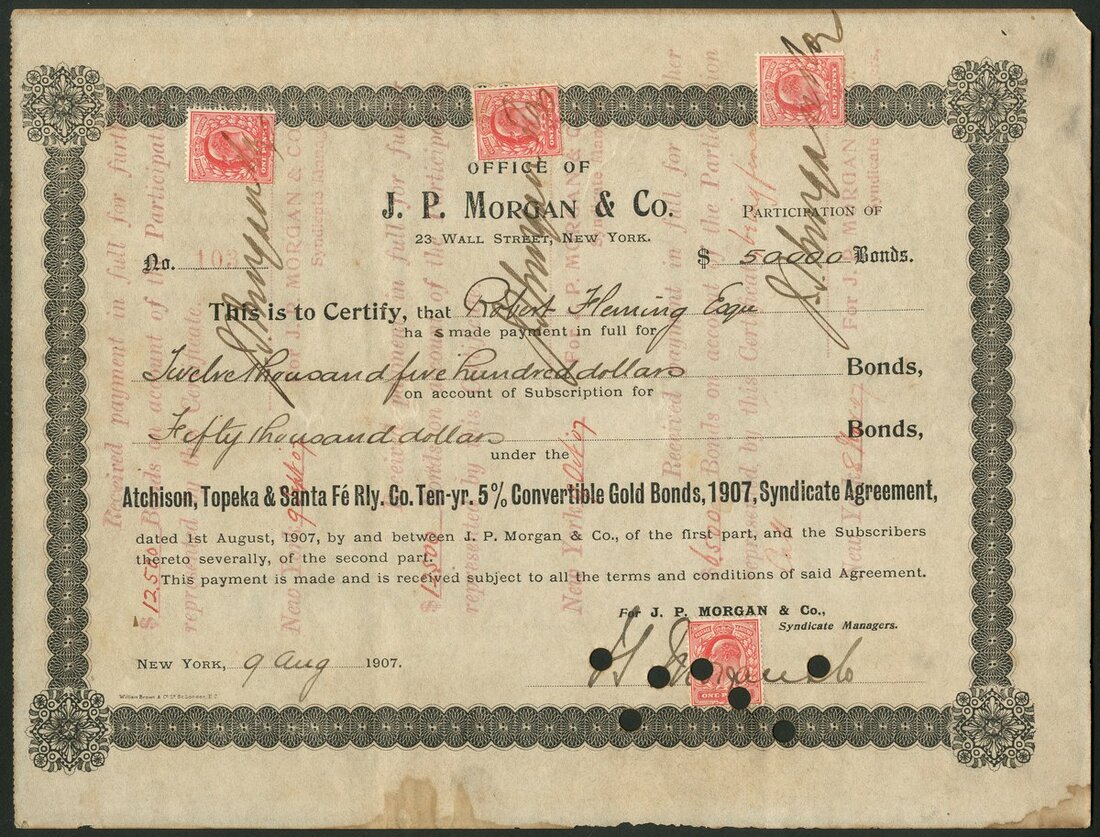 OFFICE OF
J. P. MORGAN & Co.
23 WALL STREET, NEW YORK.
PARTICIPATION OF
No. 103
$ 50000 Bonds.
This is to Certify, that Robert Fleming Esqu
ha s made payment in full for
Twelve thousand five hundred dollars Bonds,
on account of Subscription for
Fifty thousand dollars Bonds,
under the
Atchison, Topeka & Santa Fé Rly. Co. Ten-yr. 5% Convertible Gold Bonds, 1907, Syndicate Agreement,
dated 1st August, 1907, by and between J. P. Morgan & Co., of the first part, and the Subscribers
thereto severally, of the second part.
This payment is made and is received subject to all the terms and conditions of said Agreement.
For J. P. MORGAN & Co.,
Syndicate Managers.
NEW YORK, 9 Aug 1907.
William Brown & Co Ld London, E.C.
ONE PENNY
ONE PENNY
ONE PENNY
Received payment in full for furth
$12,500 Bonds on account of the Participat
represented by the Certificate
New York
For J. P. MORGAN & Co
Received payment in full for fu
$12500 Bonds on account of the Participa
represented by this
New York
For J. P. MORGAN &
Received payment in full for
Bonds on account of the Partic
represented by this Certificate
New York
For J. P. MORGAN
Syndicate